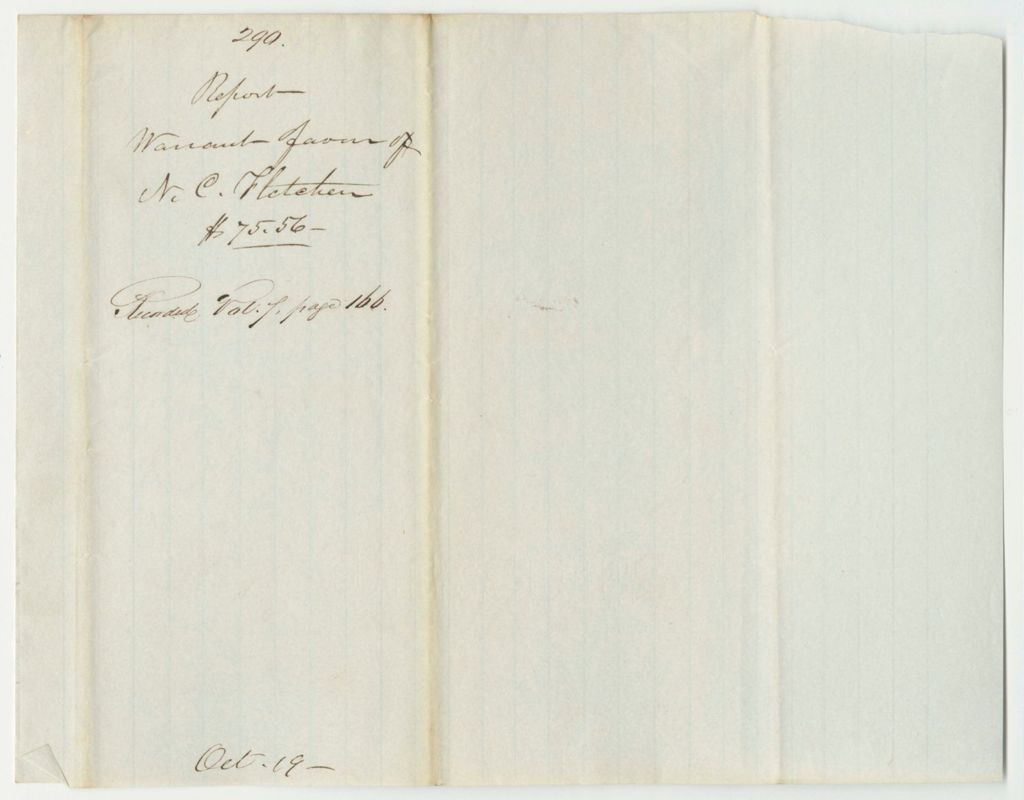 290.
Report
Warrant favor of
N. C. Fletcher
$ 75.56 –
Recorded Vol. 7. page 166.
Oct. 19 –